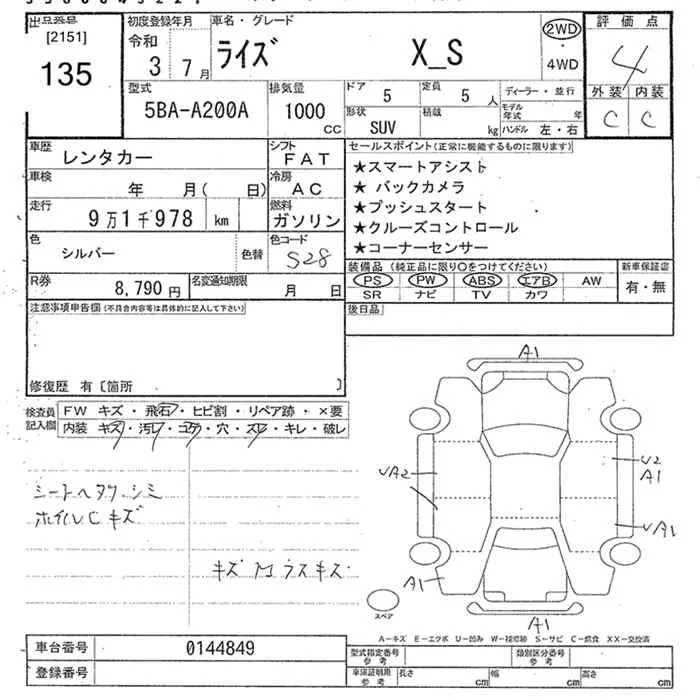 出品番号
[2151]
135
初度登録年月
令和
3年7月
車名・グレード
ライズ X_S
2WD
・
4WD
評価点
4
外装 内装
C C
型式
5BA-A200A
排気量
1000
CC
ドア
5
定員
5 人
形状
SUV
積載
kg
ディーラー・並行
モデル年式 年
ハンドル 左・右
車歴
レンタカー
シフト
FAT
車検
年 月( 日)
冷房
AC
走行
9万1千978 km
燃料
ガソリン
色
シルバー
色替
色コード
S28
R券
8,790円
名変通知期限
月 日
セールスポイント(正常に機能するものに限ります)
★スマートアシスト
★ バックカメラ
★プッシュスタート
★クルーズコントロール
★コーナーセンサー
装備品 (純正品に限り○をつけてください)
PS PW ABS エアB AW
SR ナビ TV カワ
新車保証書
有・無
後日品
注意事項申告欄(不具合内容等は具体的に記入して下さい)
修復歴 有〔箇所 〕
検査員記入欄
FW キズ・飛石・ヒビ割・リペア跡・×要
内装 キズ・汚レ・コゲ・穴・スレ・キレ・破レ
シートヘタリ、シミ
ホイルC キズ
キズ
ラスキズ
A1
UA2
U2
A1
UA1
A1
A1
スペア
A-キズ E-エクボ U-凹み W-補修跡 S-サビ C-腐食 XX-交換済
車台番号
0144849
登録番号
型式指定番号
参考
類別区分番号
参考
車庫証明用
参考
長さ cm
幅 cm
高さ cm